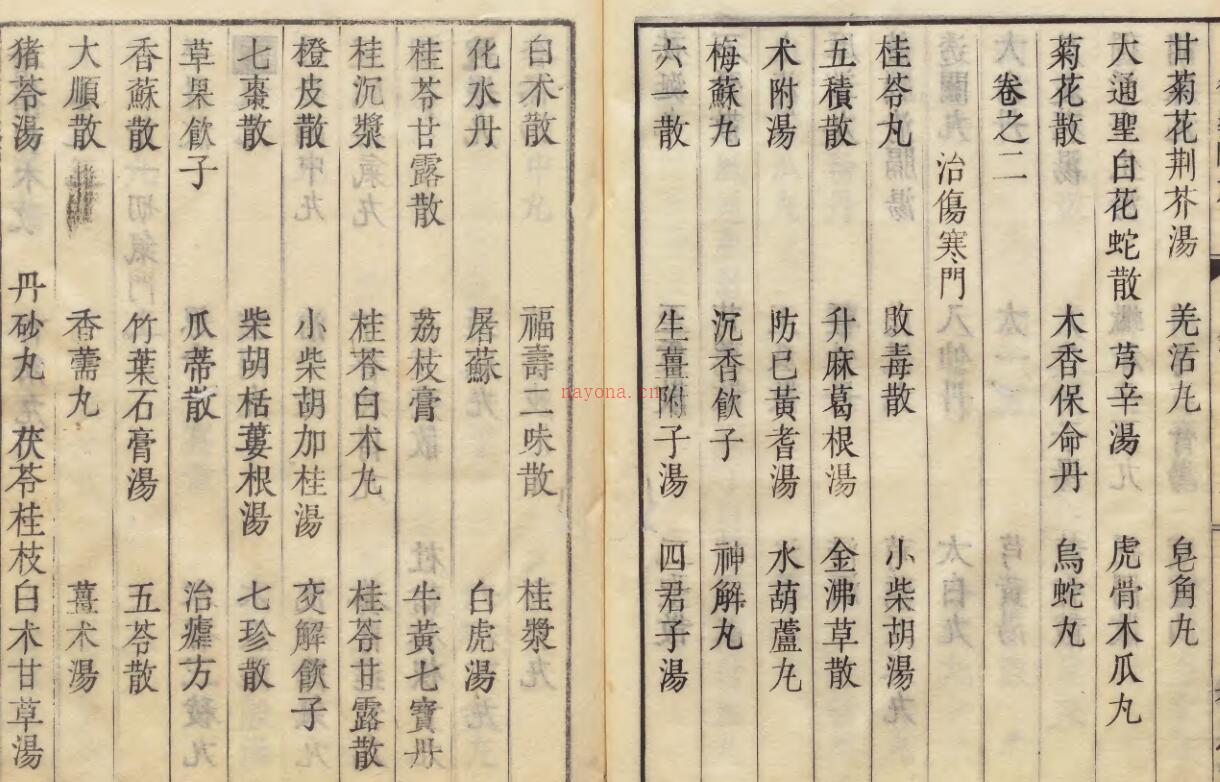 甘菊花荆芥湯 羌活九 皂角九
大通聖白花蛇散 芎辛湯 虎骨木瓜丸
菊花散 木香保命丹 烏蛇丸
卷之二
治傷寒門
桂苓丸 敗毒散 小柴胡湯
五積散 升麻葛根湯 金沸草散
术附湯 防已黃耆湯 水葫蘆九
梅蘇九 沉香飲子 神解丸
六一散 生薑附子湯 四君子湯
白术散 福壽二味散 桂漿
化水丹 屠蘇 白虎湯
桂苓甘露散 荔枝膏 牛黃七寶丹
桂沉漿 桂苓白术九 桂苓甘露散
橙皮散 小柴胡加桂湯 交解飲子
七棗散 柴胡栝蔞根湯 七珍散
草果飲子 瓜蒂散 治瘧方
香蘇散 竹葉石膏湯 五苓散
大順散 香薷丸 薑术湯
猪苓湯 丹砂丸 茯苓桂枝白术甘草湯
nayona.cn